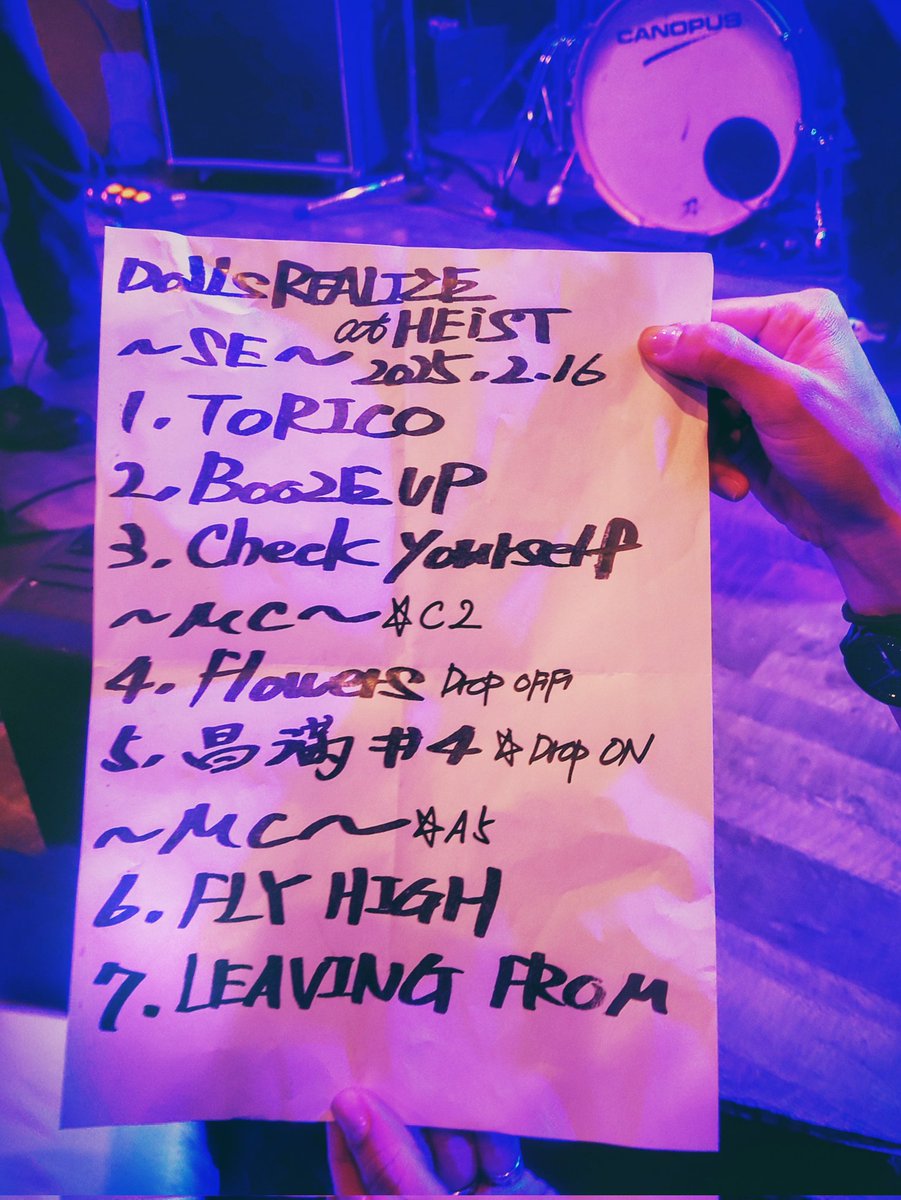 CANOPUS
Dolls REALIZE
at HEiST
~SE~ 2025.2.16
1. TORICO
2. BOOZE UP
3. Check Yourself
~MC~ ☆C2
4. Flowers Drop OFF
5. 昌満 #4 ☆ Drop ON
~MC~ ☆A5
6. FLY HIGH
7. LEAVING FROM